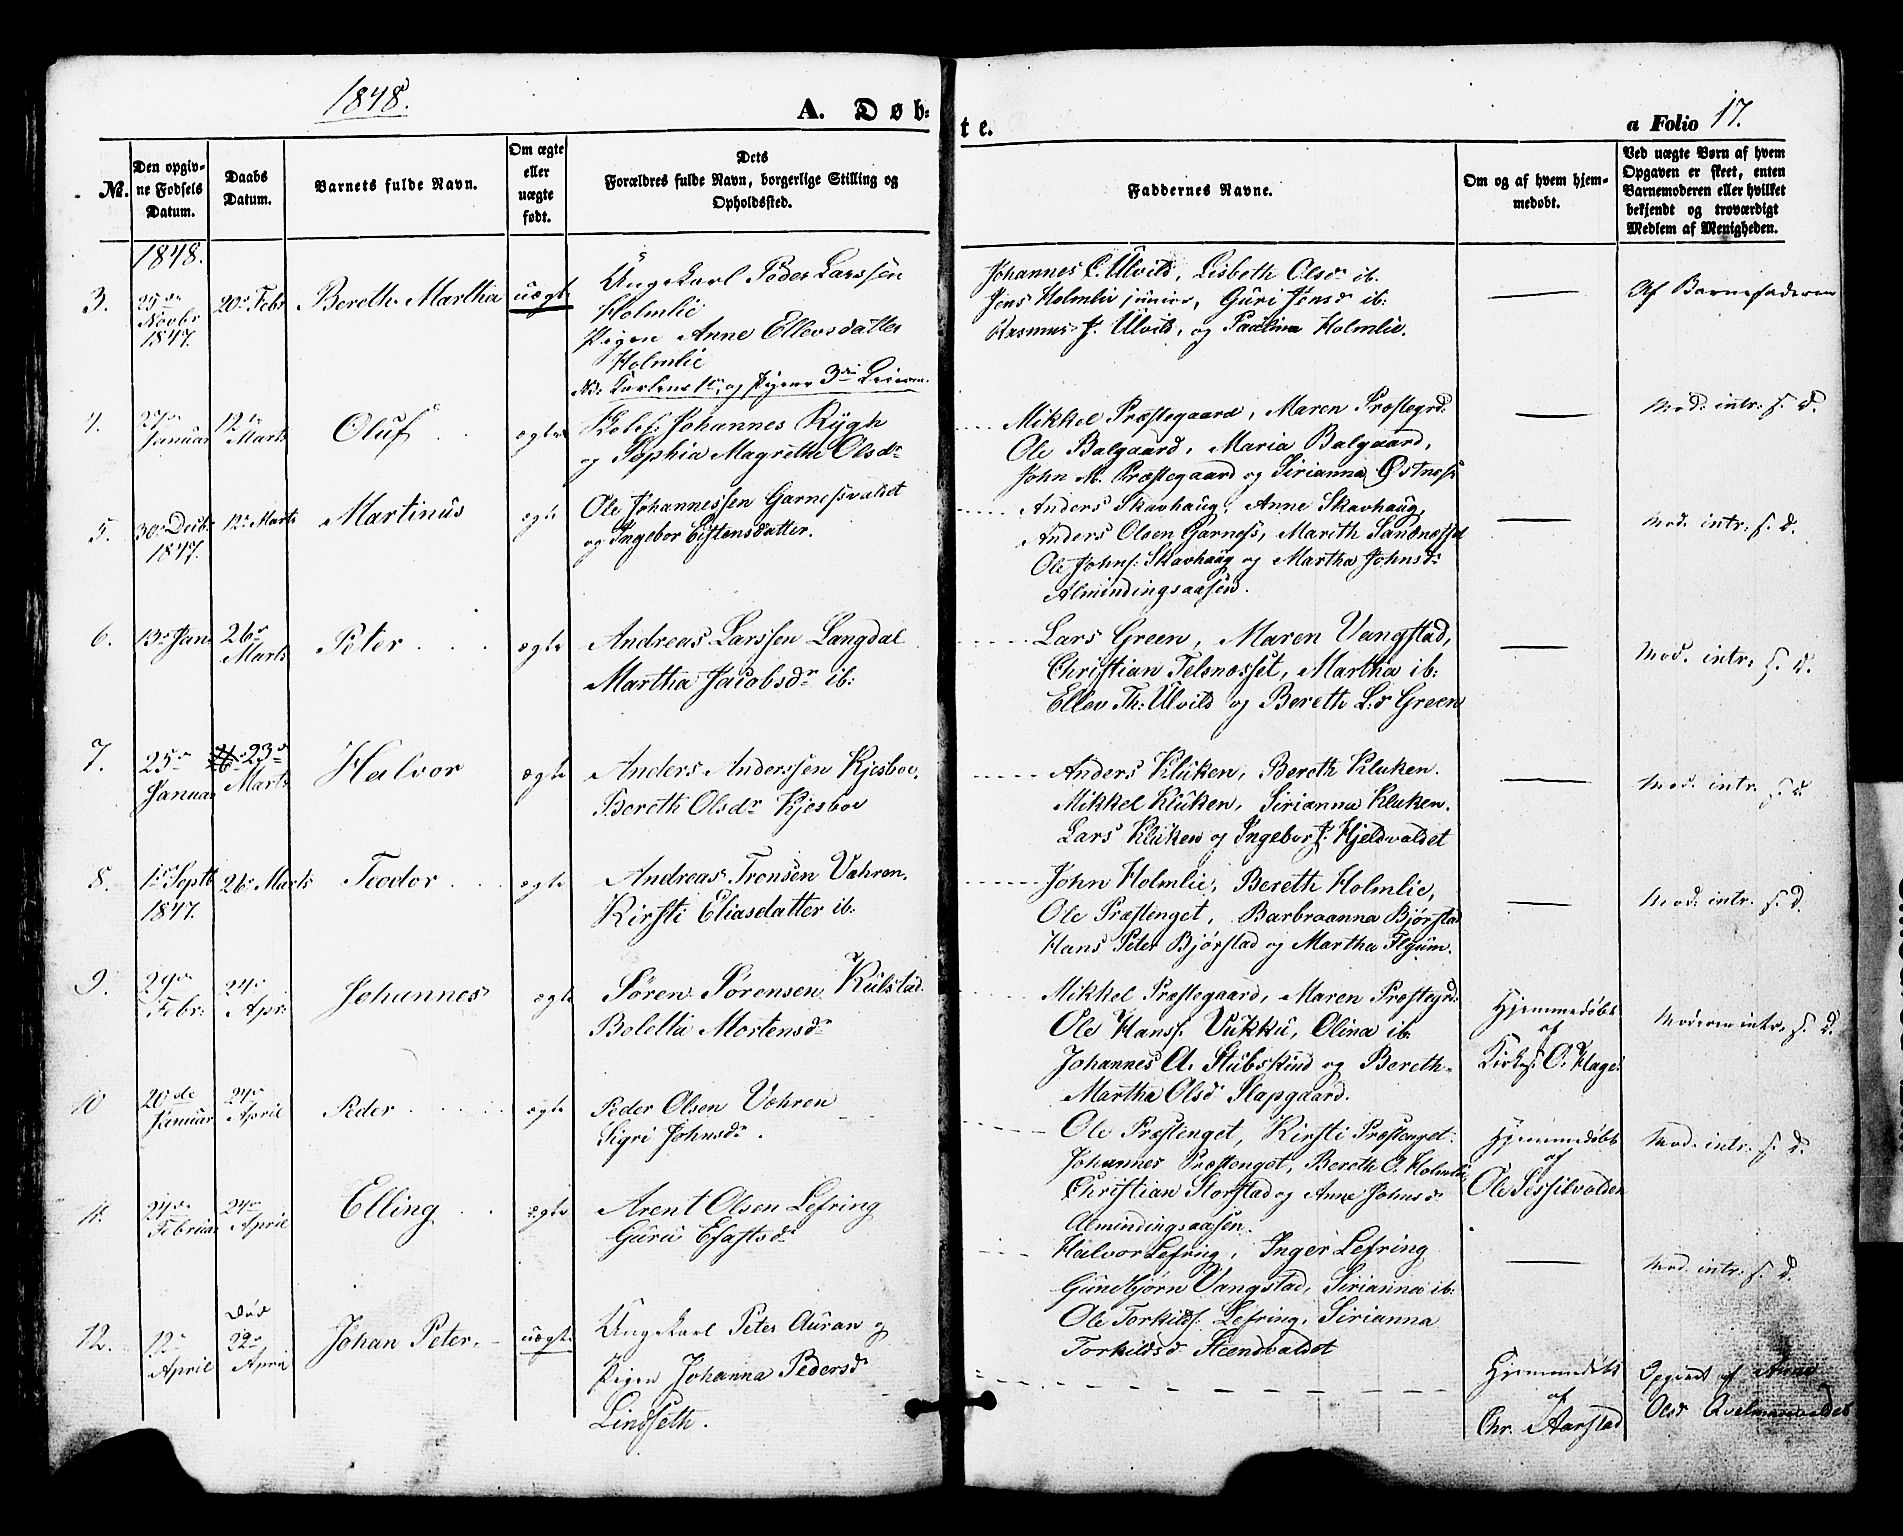 1848.
A. Døb-
te.
a Folio 17.
No.
Den opgiv-
ne Fødsels
Datum.
Daabs
Datum.
Barnets fulde Navn.
Om ægte
eller
uægte
født.
Dets
Forældres fulde Navn, borgerlige Stilling og
Opholdssted.
Faddernes Navne.
Om og af hvem hjem-
medøbt.
Ved uægte Børn af hvem
Opgaven er skeet, enten
Barnemoderen eller hvilket
bekjendt og troværdigt
Medlem af Menigheden.
1848.
3.
25de
Novbr
1847.
20de Febr
Bereth Martha
uægte
Ungekarl Peder Larssen
Holmlie
Pigen Anne Ellevsdatter
Holmlie
NB: Karlens 1ste og Pigens 3die Leierm.
Johannes E. Ulvild, Lisbeth Olsdr ib.
Jens Holmlie junior, Guri Jensdr ib:
Rasmus J. Ulvild, og Paulina Holmlie.
Af Barnefaderen
4.
27de
Januar
12te
Marts
Oluf
ægte
Johannes Rygh
og Sophia Magrethe Olsdr
Mikkel Præstegaard, Maren Præstegrd:
Ole Balgaard, Maria Balgaard,
John M. Præstegaard og Sirianna Østnes
Mod: intr: s. d.
5.
30te Decbr
1847.
12te Marts
Martinus
ægte
Ole Johannessen Garnesvaldet
og Ingebor Eistensdatter.
Anders Skavhaug, Anne Skavhaug,
Anders Olsen Garnes, Marith Sandnesset
Ole Johns: Skavhaug og Martha Johnsdr
Almindingsaasen.
Mod. intr: s. d.
6.
13de Jan
26de
Marts
Peter
ægte
Andreas Larssen Langdal
Martha Jacobsdr ib:
Lars Green, Maren Vangstad,
Christian Telsnesset, Martha ib:
Ellev Th: Ulvild og Bereth L:d Green
Mod. intr: s. d.
7.
25de
Januar
23de
Marts
Halvor
ægte
Anders Anderssen Kjesboe,
Bereth Olsdr Kjesboe
Anders Kluken, Bereth Kluken.
Mikkel Kluken, Sirianna Kluken.
Lars Kluken og Ingebor J. Hjeldvaldet
Mod. intr. s. d.
8.
1ste Septb
1847.
26de Marts
Teodor
ægte
Andreas Tronsen Vohren,
Kirsti Eliasdatter ib:
John Holmlie, Bereth Holmlie,
Ole Præstenget, Barbroanna Bjørstad
Hans Peter Bjørstad og Martha Flyum.
Mod. intr. s. d.
9.
29de
Febr:
24de
Apr:
Johannes
ægte
Søren Sørensen Kulstad
Boletta Mortensdr
Mikkel Præstegaard, Maren Præstegrd:
Ole Hans: Vukku, Olina ib:
Johannes A. Stubskind og Bereth
Martha Olsd Slapgaard.
Hjemmedøbt
af
Kirkes. O. Hage
Moderen intr. s. d.
10
20de
Januar
24de
April
Peder
ægte
Peder Olsen Vohren
Sigri Johnsdr.
Ole Præstenget, Kirsti Præstenget.
Johannes Præstenget, Bereth O. Holmlie,
Christian Storstad og Anne Johnsdr
Almindingsaasen.
Hjemmedøbt
af
Ole Sessilvolden
Mod. intr. s. d.
11.
24de
Februar
24de
April
Elling
ægte
Arent Olsen Lefring
Guru Esastsdr
Halvor Lefring, Inger Lefring
Gundbjørn Vangstad, Sirianna ib:
Ole Torkilds: Lefring, Sirianna
Torkildsd Steendvaldet
Mod. intr. s. d.
12.
12te
April
død
22de
April
Johan Peter
uægte
Ungekarl Peter Auran og
Pigen Johanna Pedersdr
Lindseth.
Hjemmedøbt
af
Chr. Aarstad
Opgivet af Anne
Olsd